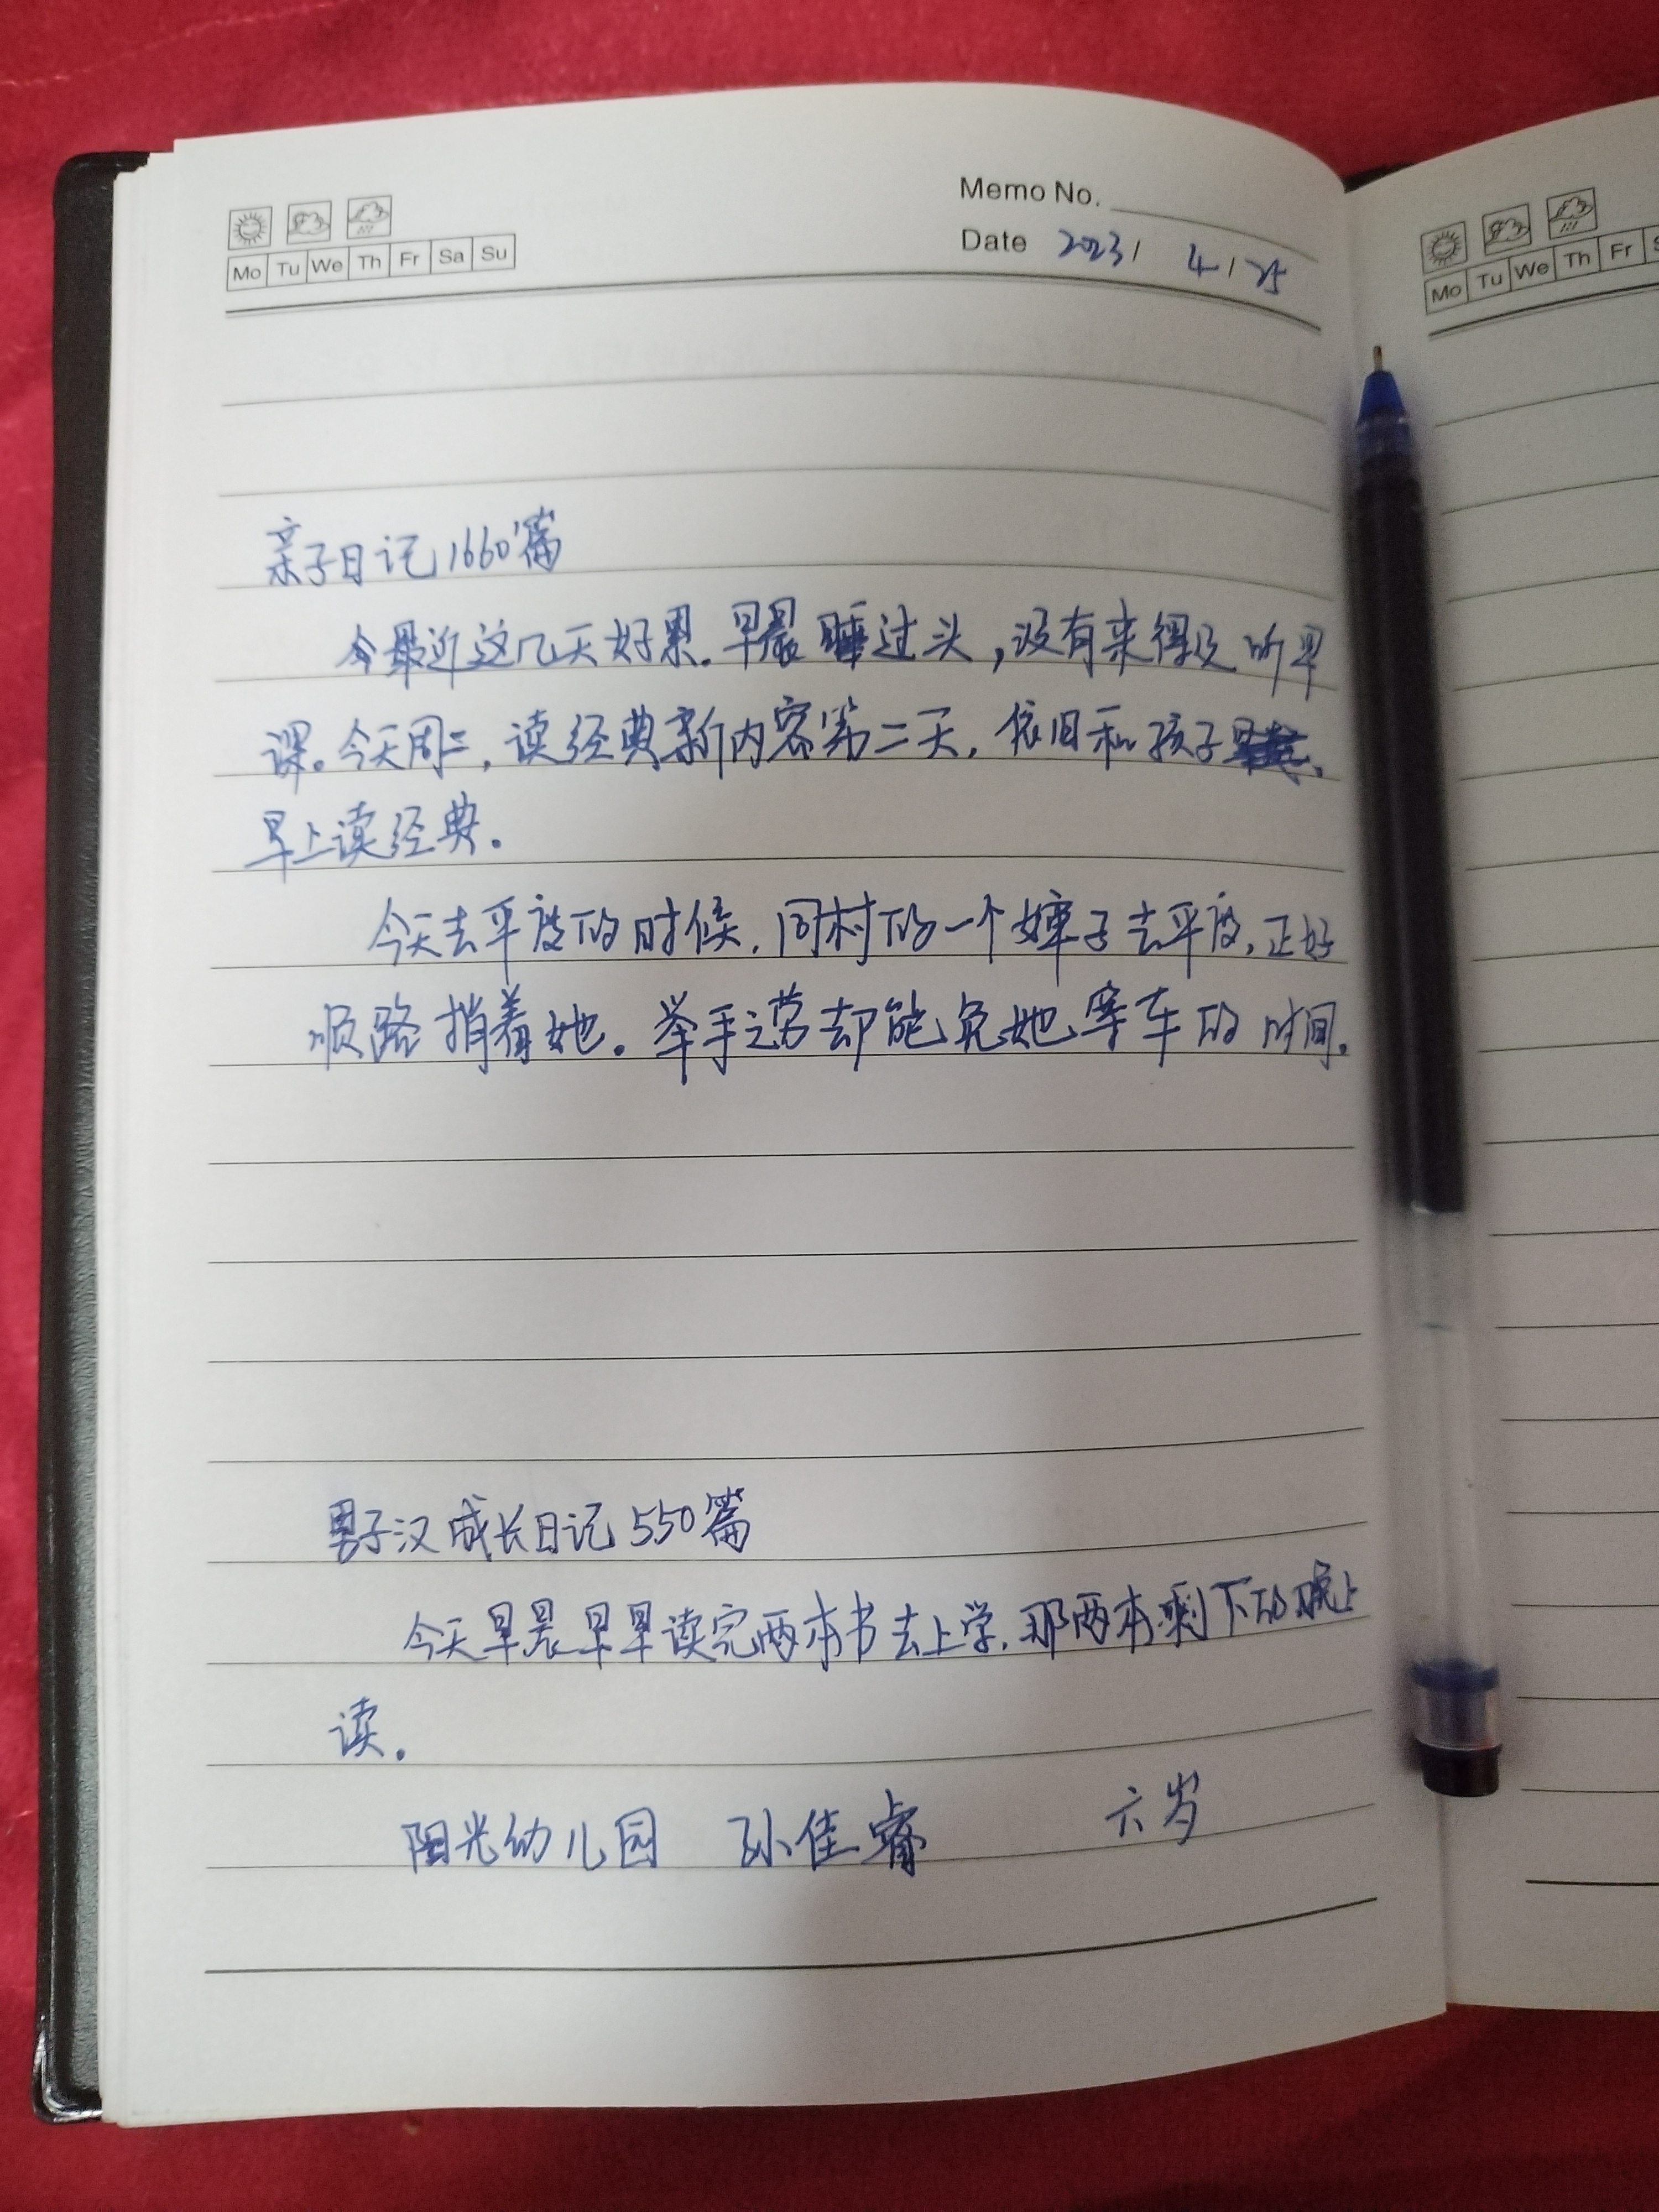 Memo No.
Mo Tu We Th Fr Sa Su
Date 2023/ 4/25
Mo Tu We Th Fr
亲子日记1660篇
最近这几天好累.早晨睡过头,没有来得及听早
课。今天周二,读经典新内容第二天,依旧和孩子
早上读经典。
今天去平度的时候,同村的一个婶子去平度,正好
顺路捎着她。举手之劳却能免她等车的时间.
男子汉成长日记550篇
今天早晨早早读完两本书去上学,那两本剩下的晚上
读。
阳光幼儿园 孙佳睿 六岁